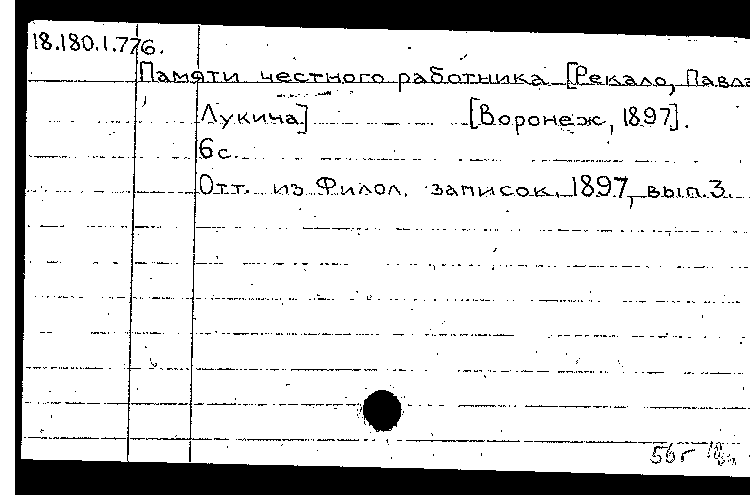 18.180.1.776.
Памяти честного работника [Рекало, Павла
Лукича] [Воронеж, 1897].
6 с.
Отт. из Филол. записок, 1897, вып. 3.
56г